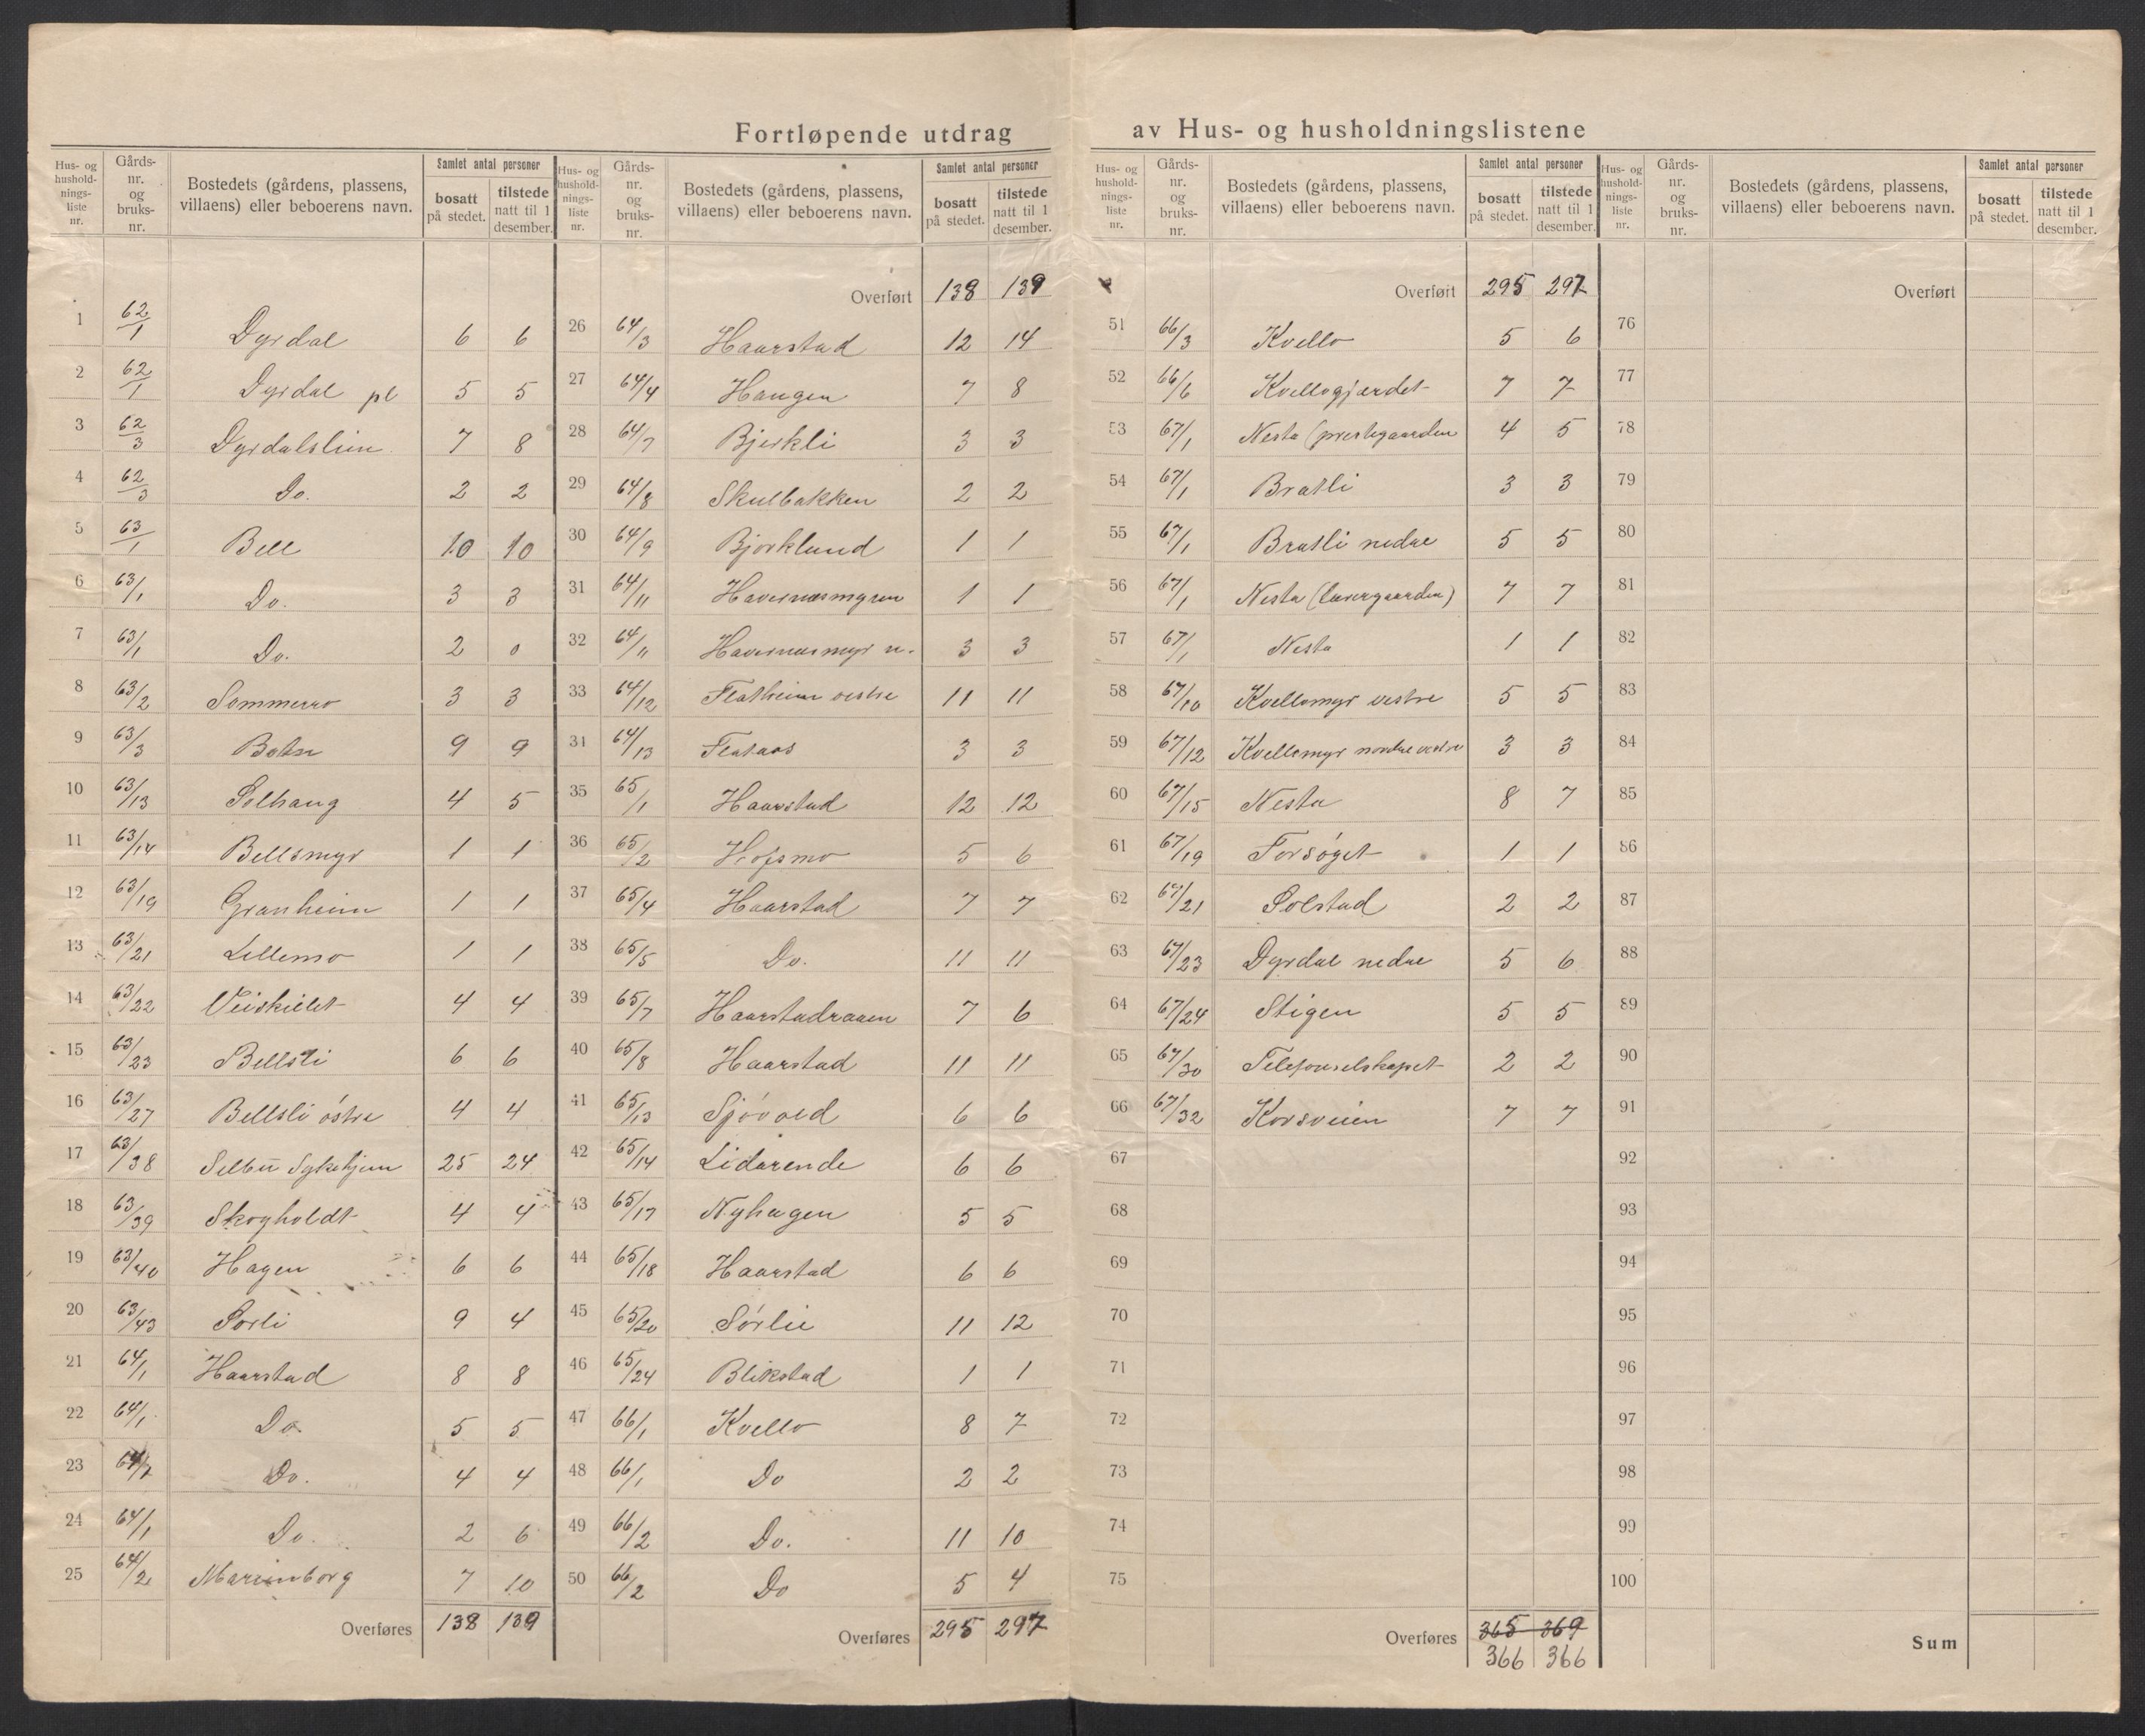 Fortløpende utdrag av Hus- og husholdningslistene
Hus- og hushold-nings-liste nr. | Gårds-nr. og bruks-nr. | Bostedets (gårdens, plassens, villaens) eller beboerens navn. | Samlet antal personer | bosatt på stedet. | tilstede natt til 1 desember.
1 62/1 Dyrdal 6 6
2 62/1 Dyrdal pl 5 5
3 62/3 Dyrdalslien 7 8
4 62/3 Do. 2 2
5 63/1 Bell 10 10
6 63/1 Do. 3 3
7 63/1 Do. 2 0
8 63/2 Sommerro 3 3
9 63/3 9 9
10 63/13 Solhaug 4 5
11 63/14 Bellsmyr 1 1
12 63/19 Granheim 1 1
13 63/21 Lillemo 1 1
14 63/22 Veiskillet 4 4
15 63/23 Bellsli 6 6
16 63/27 Bellsli östre 4 4
17 63/38 Selbu Sykehjem 25 24
18 63/39 Skogholdt 4 4
19 63/40 Hagen 6 6
20 63/43 Sorli 9 4
21 64/1 Haarstad 8 8
22 64/1 Do. 5 5
23 Do. 4 4
24 64/1 Do. 2 6
25 64/2 Marienborg 7 10
Overføres 138 139
Hus- og hushold-nings-liste nr. | Gårds-nr. og bruks-nr. | Bostedets (gårdens, plassens, villaens) eller beboerens navn. | Samlet antal personer | bosatt på stedet. | tilstede natt til 1 desember.
Overført 138 139
26 64/3 Haarstad 12 14
27 64/4 Haugen 7 8
28 64/7 Bjerkli 3 3
29 64/8 Skulbakken 2 2
30 64/9 Bjorklund 1 1
31 64/11 Havernesmyren 1 1
32 64/11 Havernesmyr n. 3 3
33 64/12 Flatheim vestre 11 11
34 64/13 Flataas 3 3
35 65/1 Haarstad 12 12
36 65/2 Hofsmo 5 6
37 65/4 Haarstad 7 7
38 65/5 Do. 11 11
39 65/7 Haarstadraaen 7 6
40 65/8 Haarstad 11 11
41 65/13 Sjövold 6 6
42 65/14 Lidarende 6 6
43 65/17 Nyhagen 5 5
44 65/18 Haarstad 6 6
45 65/20 Sörlie 11 12
46 65/24 Blikstad 1 1
47 66/1 Kvello 8 7
48 66/1 Do 2 2
49 66/2 Do. 11 10
50 66/2 Do 5 4
Overføres 295 297
Hus- og hushold-nings-liste nr. | Gårds-nr. og bruks-nr. | Bostedets (gårdens, plassens, villaens) eller beboerens navn. | Samlet antal personer | bosatt på stedet. | tilstede natt til 1 desember.
Overført 295 297
51 66/3 Kvello 5 6
52 66/6 Kvellogjærdet 7 7
53 67/1 Nesta (prestegaarden 4 5
54 67/1 Bratli 3 3
55 67/1 Bratli nedre 5 5
56 67/1 Nesta 7 7
57 67/1 Nesta 1 1
58 67/10 Kvellomyr vestre 5 5
59 67/12 Kvellomyr nordre vestre 3 3
60 67/15 Nesta 8 7
61 67/19 Forsöget 1 1
62 67/21 Solstad 2 2
63 67/23 Dyrdal nedre 5 6
64 67/24 Stigen 5 5
65 67/30 Telefonselskapet 2 2
66 67/32 Korsveien 7 7
67
68
69
70
71
72
73
74
75
Overføres 365 369
366 366
Hus- og hushold-nings-liste nr. | Gårds-nr. og bruks-nr. | Bostedets (gårdens, plassens, villaens) eller beboerens navn. | Samlet antal personer | bosatt på stedet. | tilstede natt til 1 desember.
Overført
76
77
78
79
80
81
82
83
84
85
86
87
88
89
90
91
92
93
94
95
96
97
98
99
100
Sum